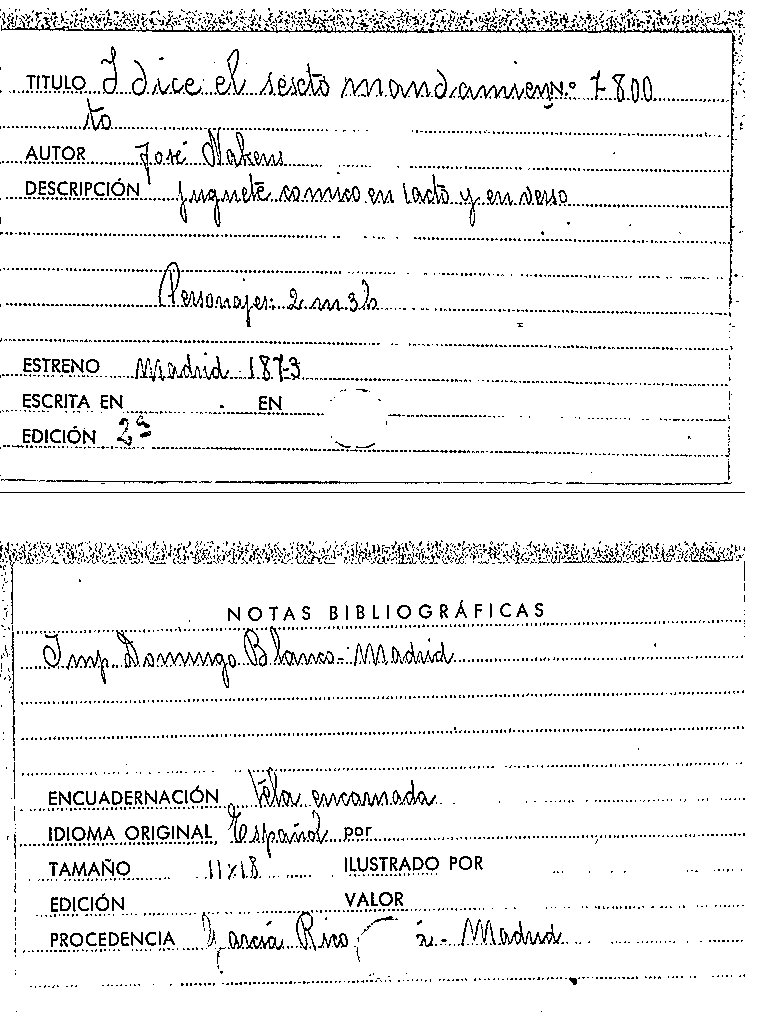 TITULO I dice el sescto mandamien N.º 7800
to
AUTOR José Nakens
DESCRIPCIÓN juguete comico en 1 acto y en verso
Personajes: 2 m 3 h
ESTRENO Madrid 1873
ESCRITA EN EN
EDICIÓN 2ª
NOTAS BIBLIOGRÁFICAS
Imp. Domingo Blanco - Madrid
ENCUADERNACIÓN Tela encarnada
IDIOMA ORIGINAL Español por
TAMAÑO 11x18 ILUSTRADO POR
EDICIÓN VALOR
PROCEDENCIA García Rico - Madrid